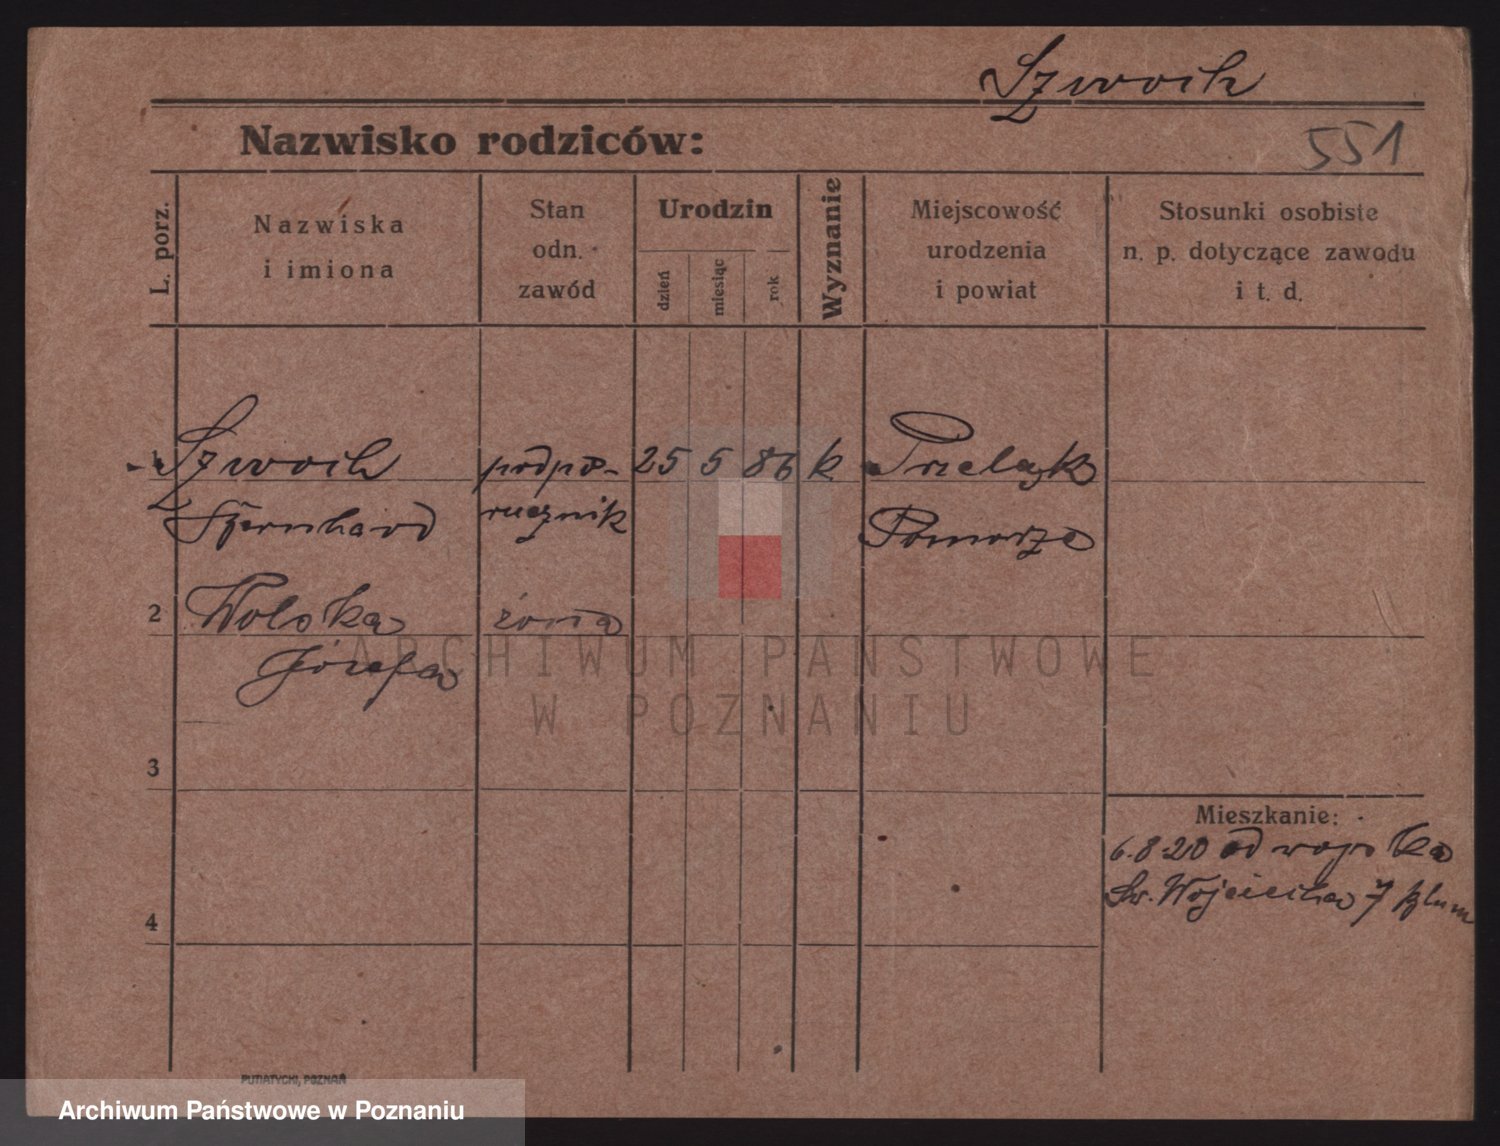 Szwoch
Nazwisko rodziców:
551
L. porz.
Nazwiska
i imiona
Stan
odn.
zawód
Urodzin
dzień
miesiąc
rok
Wyznanie
Miejscowość
urodzenia
i powiat
Stosunki osobiste
n. p. dotyczące zawodu
i t. d.
1 Szwoch podpo- 25 5 86 k
Bernhard rucznik Pomorze
2 Wolska żona
Józefa
3
Mieszkanie:
6.8.20 od wojska
Św. Wojciecha 7
4
PUTIATYCKI, POZNAŃ
ARCHIWUM PAŃSTWOWE
W POZNANIU
Archiwum Państwowe w Poznaniu